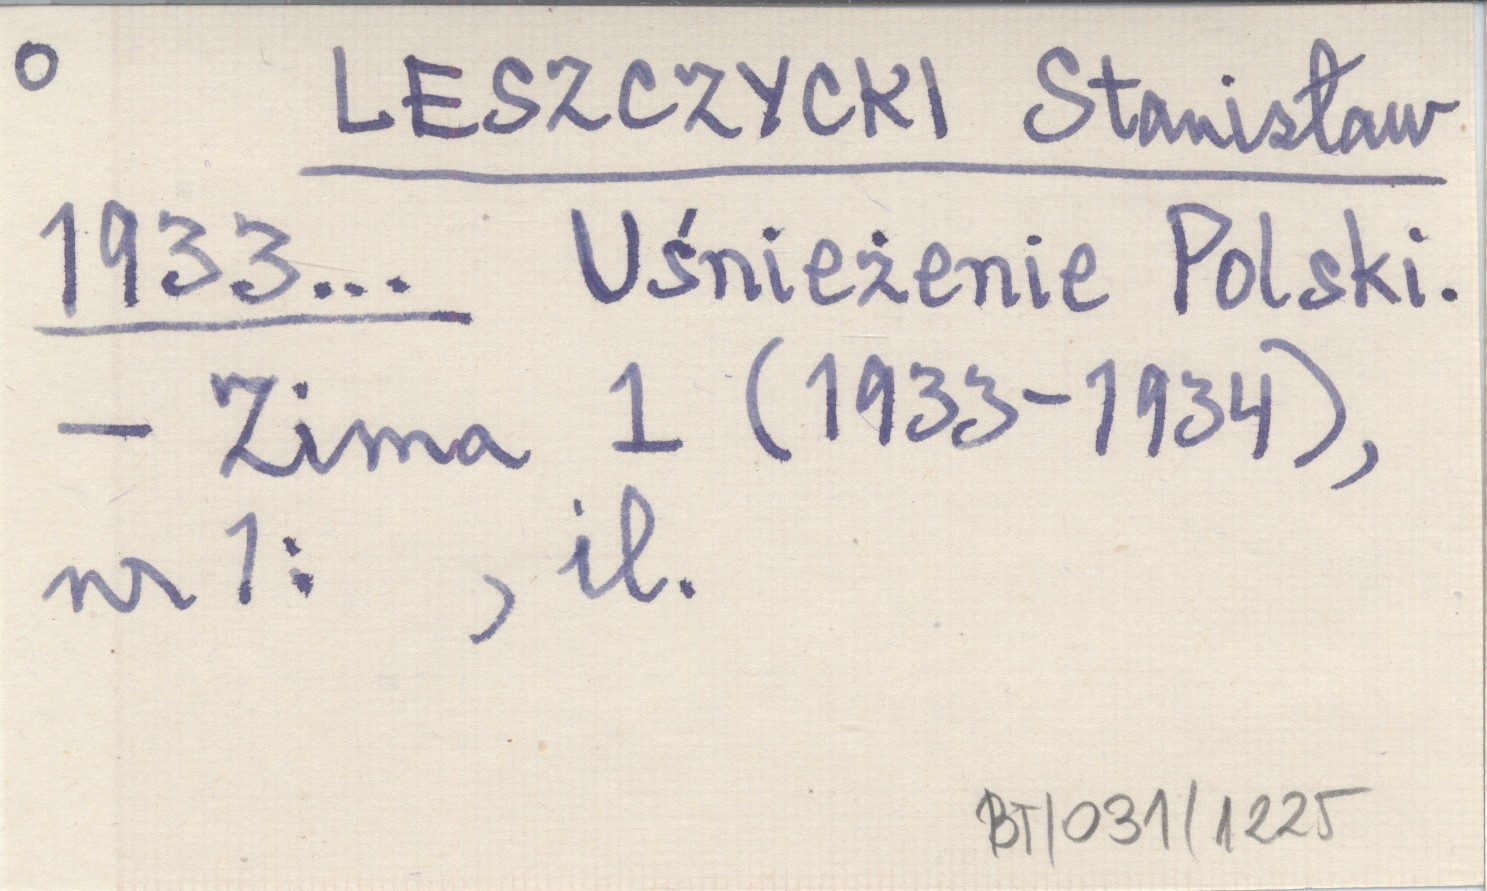 o LESZCZYCKI Stanisław
1933... Uśnieżenie Polski.
— Zima 1 (1933-1934),
nr 1: , il.
BT/031/1225